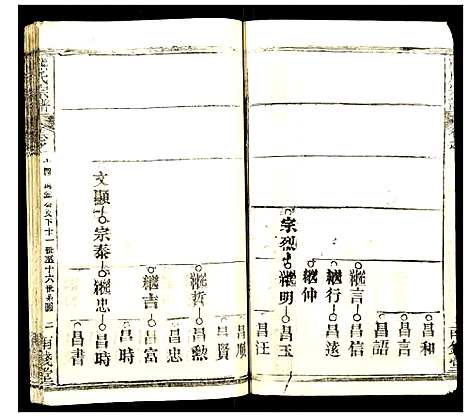 宗烈
繼明
繼仲
繼行
繼言
昌和
昌言
昌語
昌信
昌遠
昌玉
昌汪
文顯
宗泰
繼忠
繼吉
繼哲
昌順
昌賢
昌勲
昌忠
昌富
昌時
昌時
昌書
氏宗譜